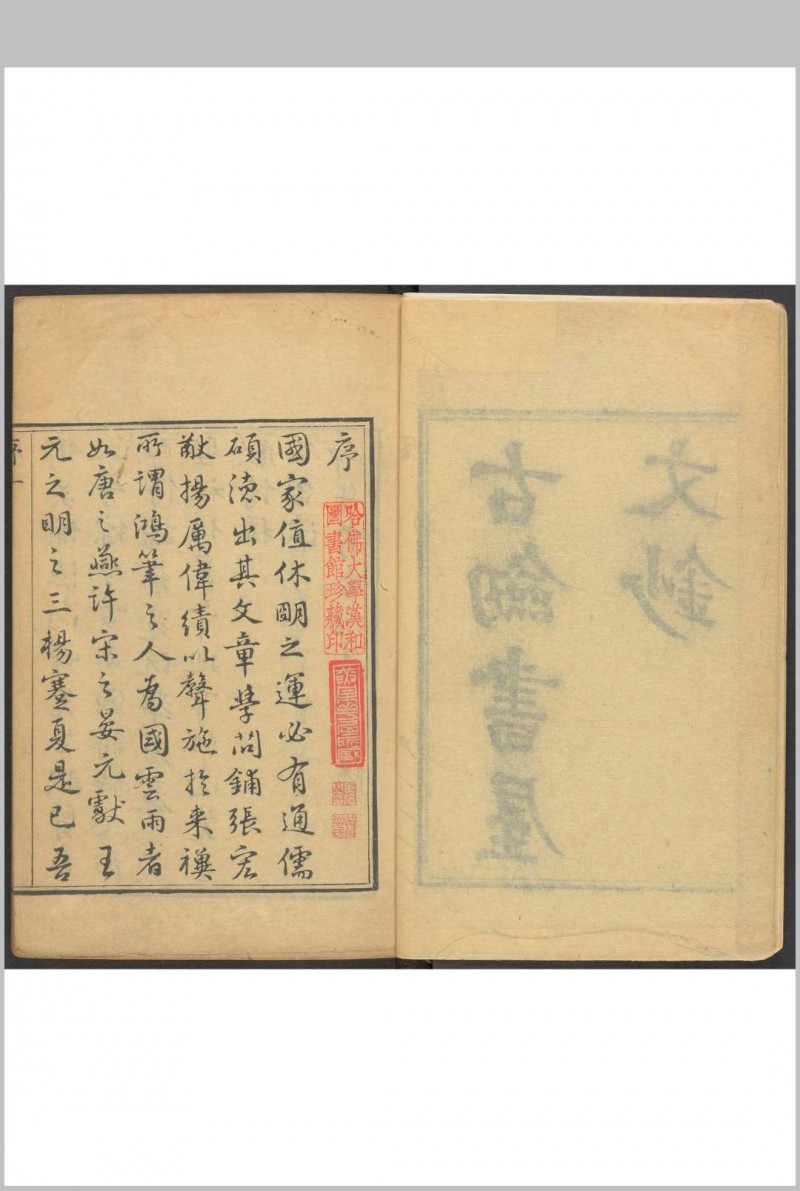 古劒書屋
文鈔
序
哈佛大學漢和
圖書館珍藏印
國家值休明之運必有通儒
碩德出其文章學問鋪張宏
猷揚厲偉績以聲施於来禩
所謂鴻筆之人為國雲雨者
如唐之燕許宋之晏元獻王
元之明之三楊蹇夏是已吾
序 一